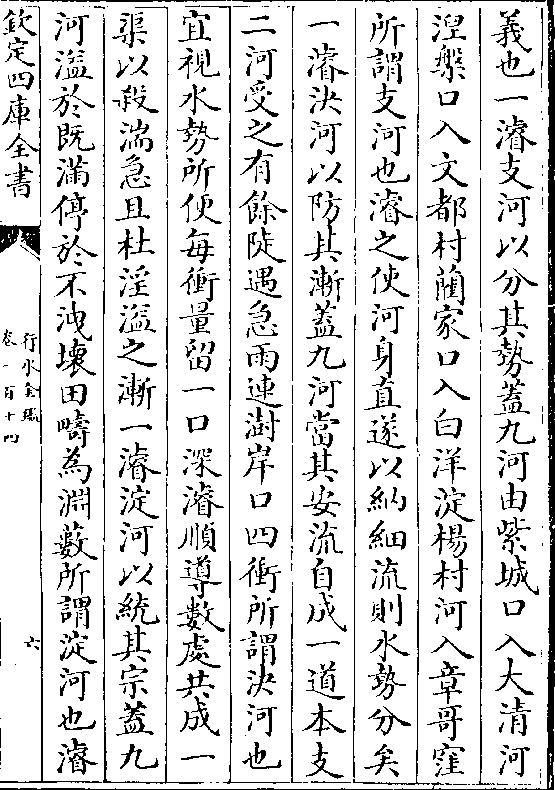 義也一濬支河以分其勢蓋九河由紫城口入大清河
涅槃口入文都村藺家口入白洋淀楊村河入章哥窪
所謂支河也濬之使河身直遂以納細流則水勢分矣
一濬決河以防其漸蓋九河當其安流自成一道本支
二河受之有餘陡遇急雨連澍岸口四衝所謂決河也
宜視水勢所便每衝量留一口深濬順導數處共成一
渠以殺湍急且杜淫溢之漸一濬淀河以統其宗蓋九
河溢於既滿停於不洩壊田疇為淵藪所謂淀河也濬
欽定四庫全書
行水金鑑
卷一百十四
六